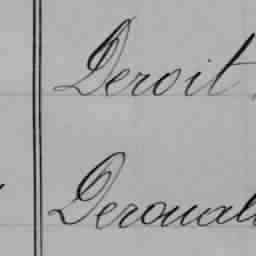 Deroit
Deroual